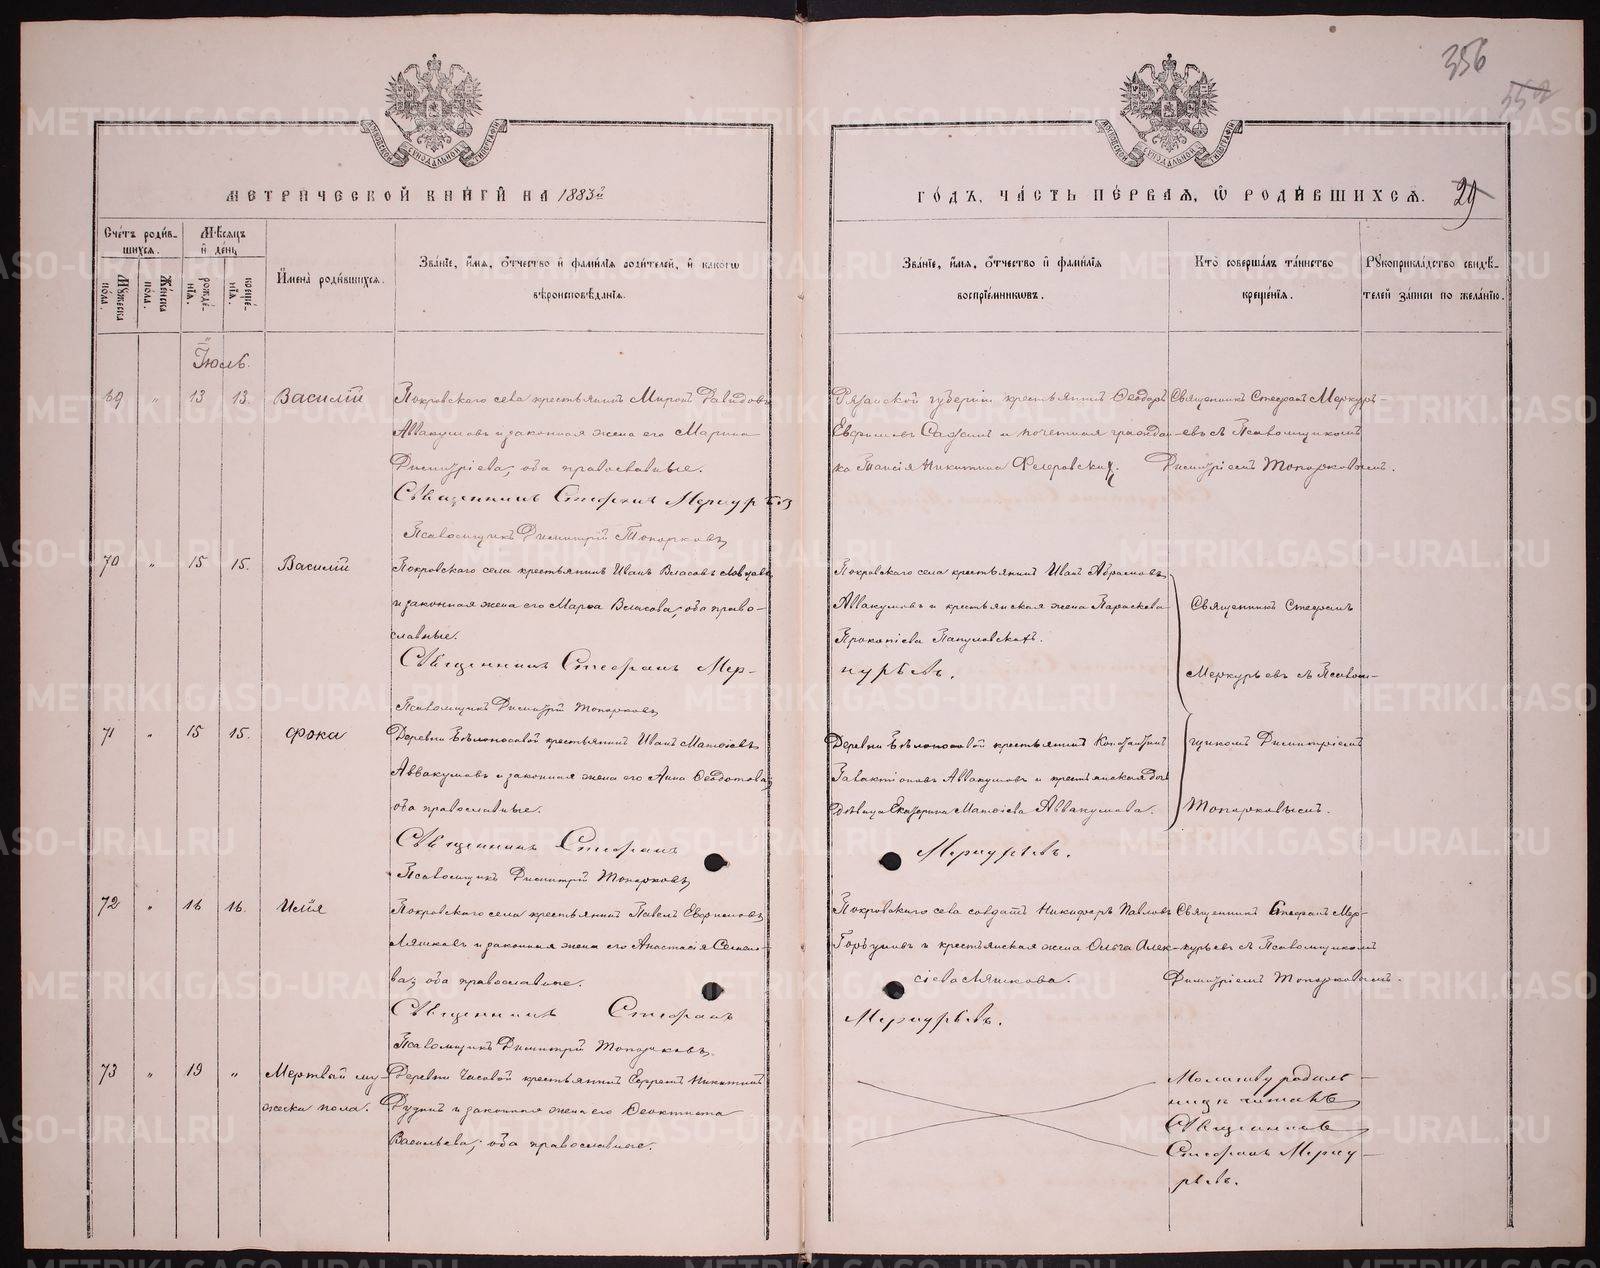 356
552
МОСКОВСКОЙ СѴНОДАЛЬНОЙ ТИПОГРАФІИ
МОСКОВСКОЙ СѴНОДАЛЬНОЙ ТИПОГРАФІИ
МЕТРИЧЕСКОЙ КНИГИ НА 1883й
ГОДЪ, ЧАСТЬ ПЕРВАЯ, Ѡ РОДИВШИХСЯ. 29
Счетъ родив-
шихся.
Мѣсяцъ
и день
Мужеска
пола.
Женска
пола.
рожде-
нія.
креще-
нія.
Имена родившихся.
Званіе, имя, отчество и фамилія родителей, и какогѡ
вѣроисповѣданія.
Званіе, имя, отчество и фамилія
воспріемниковъ.
Кто совершалъ таинство
крещенія.
Рукоприкладство свидѣ-
телей записи по желанію.
Іюль.
69 " 13 13. Василій
Покровскаго села крестьянинъ Миронъ Давидовъ
Аввакумовъ и законная жена его Марина
Димитріева, оба православные.
Священникъ Стефанъ Меркурьев
Псаломщикъ Димитрій Топорковъ
Рязанской губерніи крестьянинъ Ѳеодоръ
Ефимовъ и почетная граждан-
ка Таисія Никитина
Священникъ Стефанъ Меркурь-
евъ съ Псаломщикомъ
Димитріемъ Топорковымъ.
70 " 15 15. Василій
Покровскаго села крестьянинъ Иванъ Власовъ
и законная жена его Марѳа Власова, оба право-
славные.
Священникъ Стефанъ Мер-
Псаломщикъ Димитрій Топорковъ
Покровскаго села крестьянинъ Иванъ Абрамовъ
Аввакумовъ и крестьянская жена Параскева
Прокопіева
курьевъ.
Священникъ Стефанъ
Меркурьевъ съ Псалом-
щикомъ Димитріемъ
Топорковымъ.
71 " 15 15. Фока
Деревни Бѣлоносовой крестьянинъ Иванъ Матѳіевъ
Аввакумовъ и законная жена его Анна Ѳедотова,
оба православные.
Священникъ Стефанъ
Псаломщикъ Димитрій Топорковъ
Деревни Бѣлоносовой крестьянинъ Константинъ
Галактіоновъ Аввакумовъ и крестьянская дочь
дѣвица Екатерина Матѳіева Аввакумова.
Меркурьевъ.
72 " 16 16. Илія
Покровскаго села крестьянинъ Павелъ Ефимовъ
Ляшковъ и законная жена его Анастасія Семено-
ва, оба православные.
Священникъ Стефанъ
Псаломщикъ Димитрій Топорковъ.
Покровскаго села солдатъ Никифоръ Павловъ
Горбуновъ и крестьянская жена Ольга Алек-
сіева Ляшкова.
Меркурьевъ.
Священникъ Стефанъ Мер-
курьевъ съ Псаломщикомъ
Димитріемъ Топорковымъ.
73 " 19 " Мертвый му-
жеска пола.
Деревни Часовой крестьянинъ Ефремъ Никитинъ
Рудинъ и законная жена его Ѳеоктиста
Васильева, оба православные.
Молитву родиль-
ницѣ читалъ
Священникъ
Стефанъ Мерку-
рьевъ.
METRIKI.GASO-URAL.RU